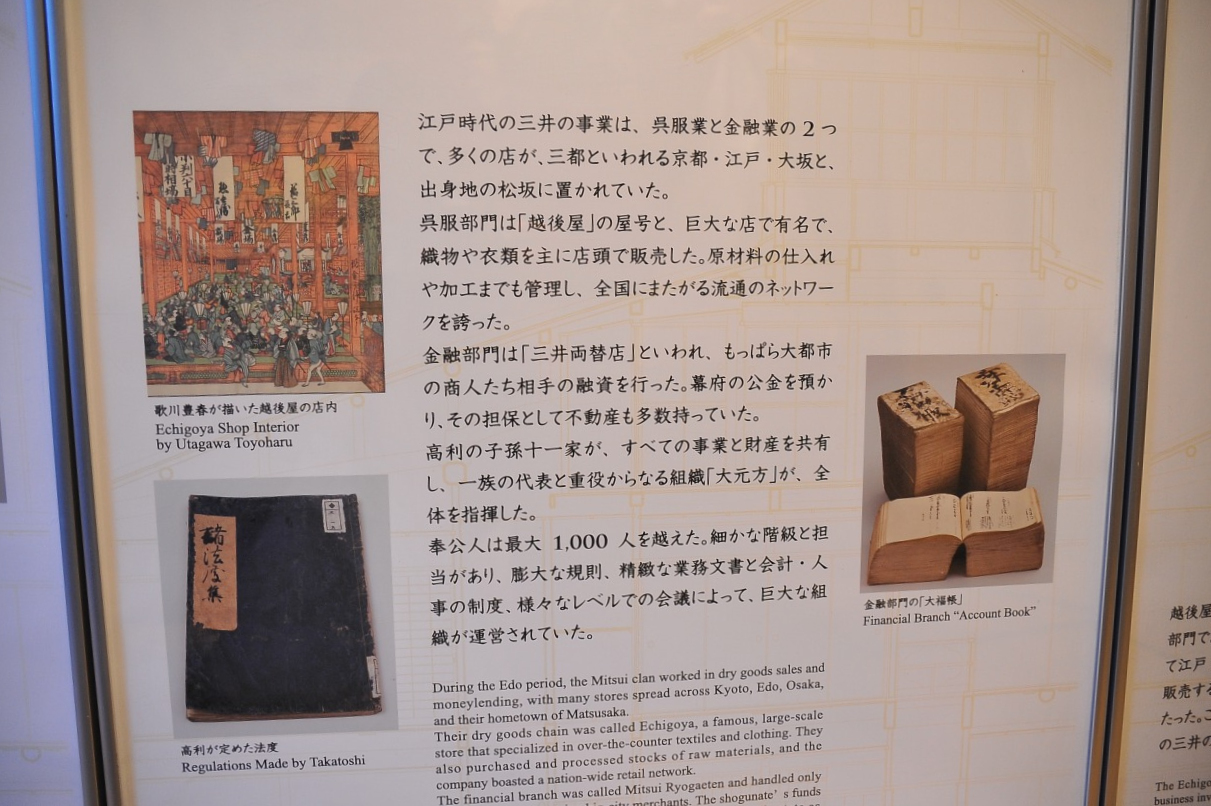 江戸時代の三井の事業は、呉服業と金融業の2つ
で、多くの店が、三都といわれる京都・江戸・大坂と、
出身地の松坂に置かれていた。
呉服部門は「越後屋」の屋号と、巨大な店で有名で、
織物や衣類を主に店頭で販売した。原材料の仕入れ
や加工までも管理し、全国にまたがる流通のネットワー
クを誇った。
金融部門は「三井両替店」といわれ、もっぱら大都市
の商人たち相手の融資を行った。幕府の公金を預か
り、その担保として不動産も多数持っていた。
高利の子孫十一家が、すべての事業と財産を共有
し、一族の代表と重役からなる組織「大元方」が、全
体を指揮した。
奉公人は最大 1,000 人を越えた。細かな階級と担
当があり、膨大な規則、精緻な業務文書と会計・人
事の制度、様々なレベルでの会議によって、巨大な組
織が運営されていた。
During the Edo period, the Mitsui clan worked in dry goods sales and
moneylending, with many stores spread across Kyoto, Edo, Osaka,
and their hometown of Matsusaka.
Their dry goods chain was called Echigoya, a famous, large-scale
store that specialized in over-the-counter textiles and clothing. They
also purchased and processed stocks of raw materials, and the
company boasted a nation-wide retail network.
The financial branch was called Mitsui Ryogaeten and handled only
city merchants. The shogunate's funds
歌川豊春が描いた越後屋の店内
Echigoya Shop Interior
by Utagawa Toyoharu
諸法度集
高利が定めた法度
Regulations Made by Takatoshi
金融部門の「大福帳」
Financial Branch "Account Book"
越後屋
部門で
て江戸
販売する
たった。
の三井の
The Echigo
business inv